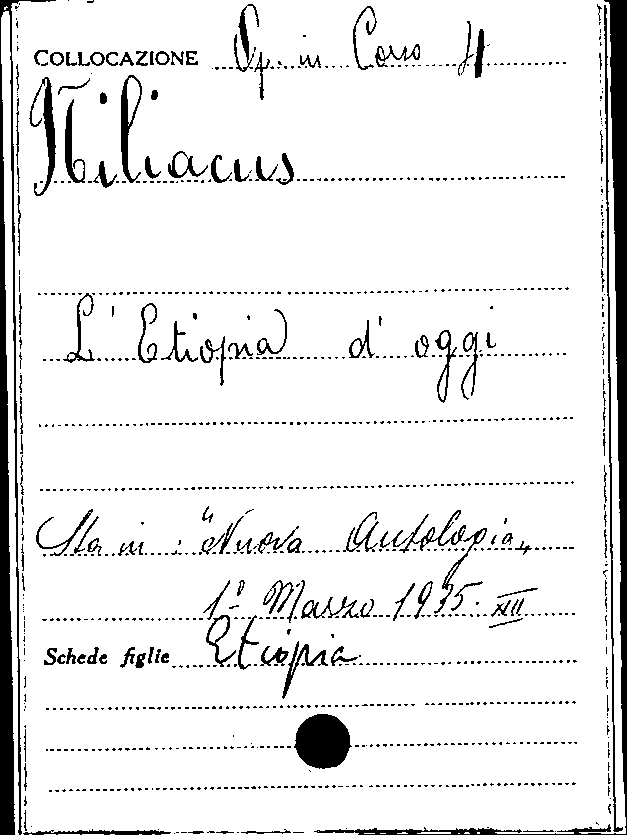 COLLOCAZIONE Op. in Corso H
Niliacus
L'Etiopia d'oggi
Sta in: "Nuova Antologia„
1º Marzo 1935. XIII
Schede figlie Etiopia